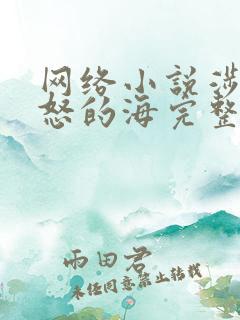 网络小说涉
怒的海完整
雨田君
未经同意禁止转载